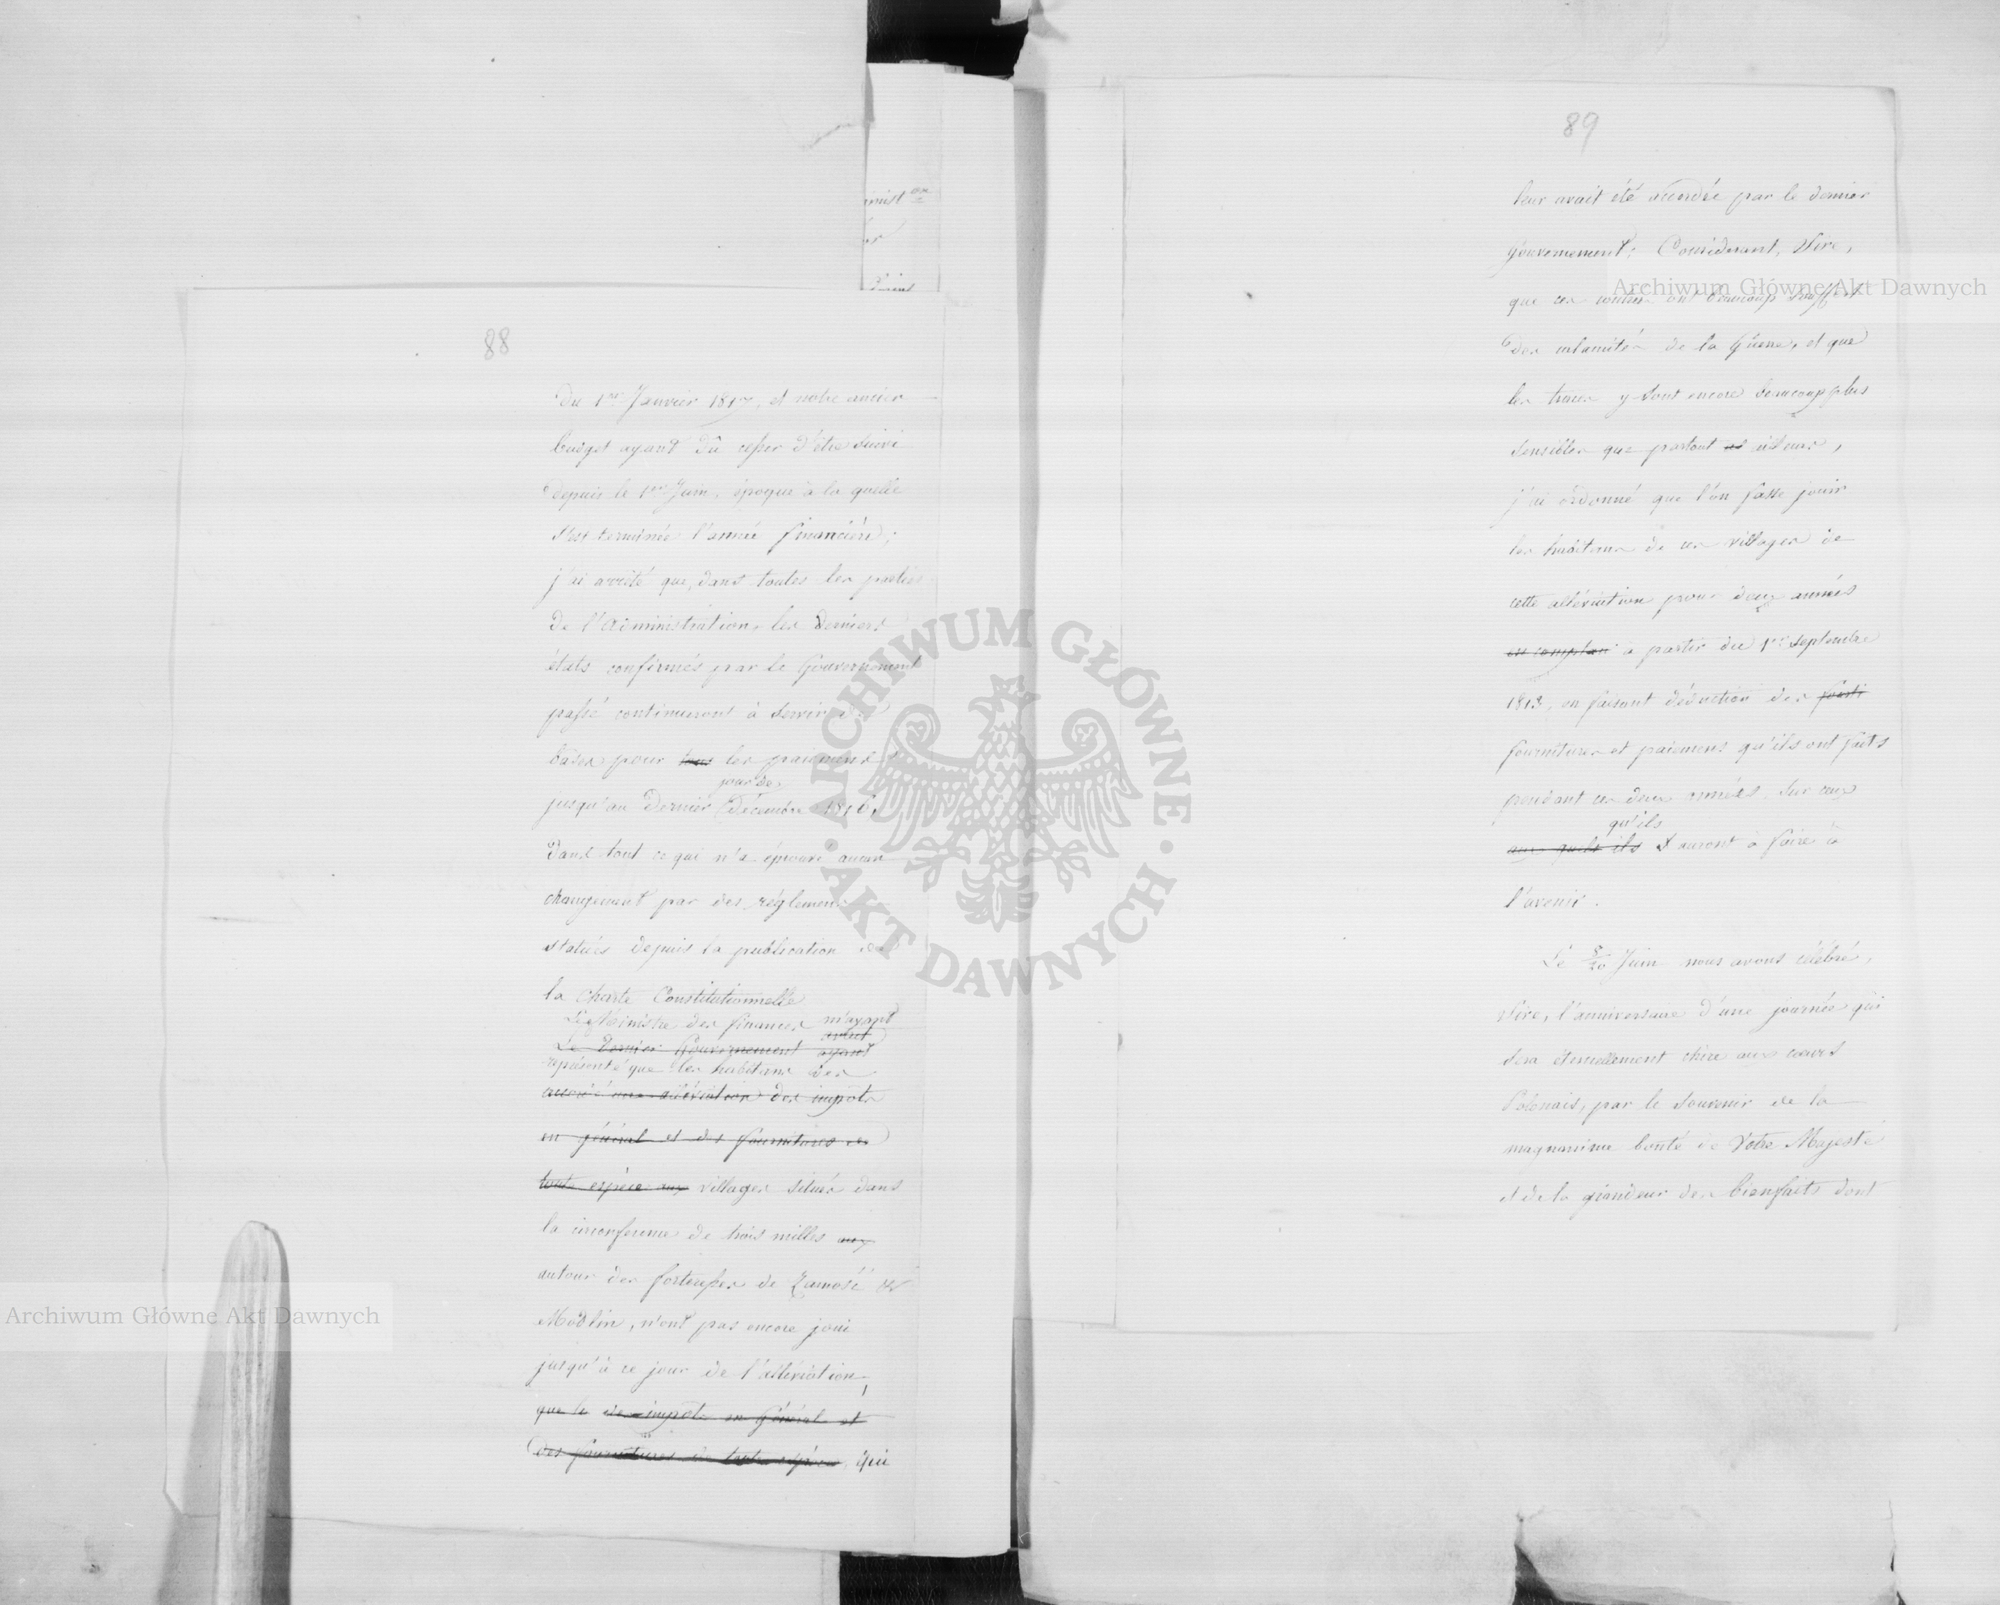 88
du 1er Janvier 1817, et notre ancien
budget ayant dû cesser d'être suivi
depuis le 1er Juin, époque à la quelle
s'est terminée l'année financière;
j'ai arrêté que, dans toutes les parties
de l'Administration, les derniers
états confirmés par le Gouvernement
passé continueront à servir de
bases pour tous les paiemens
jour de
jusqu'au dernier Décembre 1816,
dans tout ce qui n'a éprouvé aucun
changement par des réglemens
statués depuis la publication de
la Charte Constitutionnelle
Le Ministre des finances m'ayant
avait
Le dernier Gouvernement ayant
représenté que les habitans des
accordé une alléviation des impôts
en général et des fournitures de
toute espèce aux villages situés dans
la circonférence de trois milles aux
autour des forteresses de Zamość et
Modlin, n'ont pas encore joui
jusqu'à ce jour de l'alléviation,
que le des impôts en Général et
des fournitures de toute espèce, qui
89
leur avait été accordée par le dernier
gouvernement; Considérant, Sire,
que ces contrées ont beaucoup souffert
des calamités de la Guerre, et que
les traces y sont encore beaucoup plus
sensibles que partout ailleurs,
j'ai ordonné que l'on fasse jouir
les habitans de ces villages de
cette alléviation pour deux années
en comptant à partir du 1er Septembre
1813, en faisant déduction des
fournitures et paiemens qu'ils ont faits
pendant ces deux années, sur ceux
qu'ils
aux quels ils auront à faire à
l'avenir.
Le 8/20 Juin nous avons célébré,
Sire, l'anniversaire d'une journée qui
sera éternellement chère aux cœurs
Polonais, par le souvenir de la
magnanime bonté de Votre Majesté
et de la grandeur des bienfaits dont
ARCHIWUM GŁÓWNE
AKT DAWNYCH
Archiwum Główne Akt Dawnych
Archiwum Główne Akt Dawnych